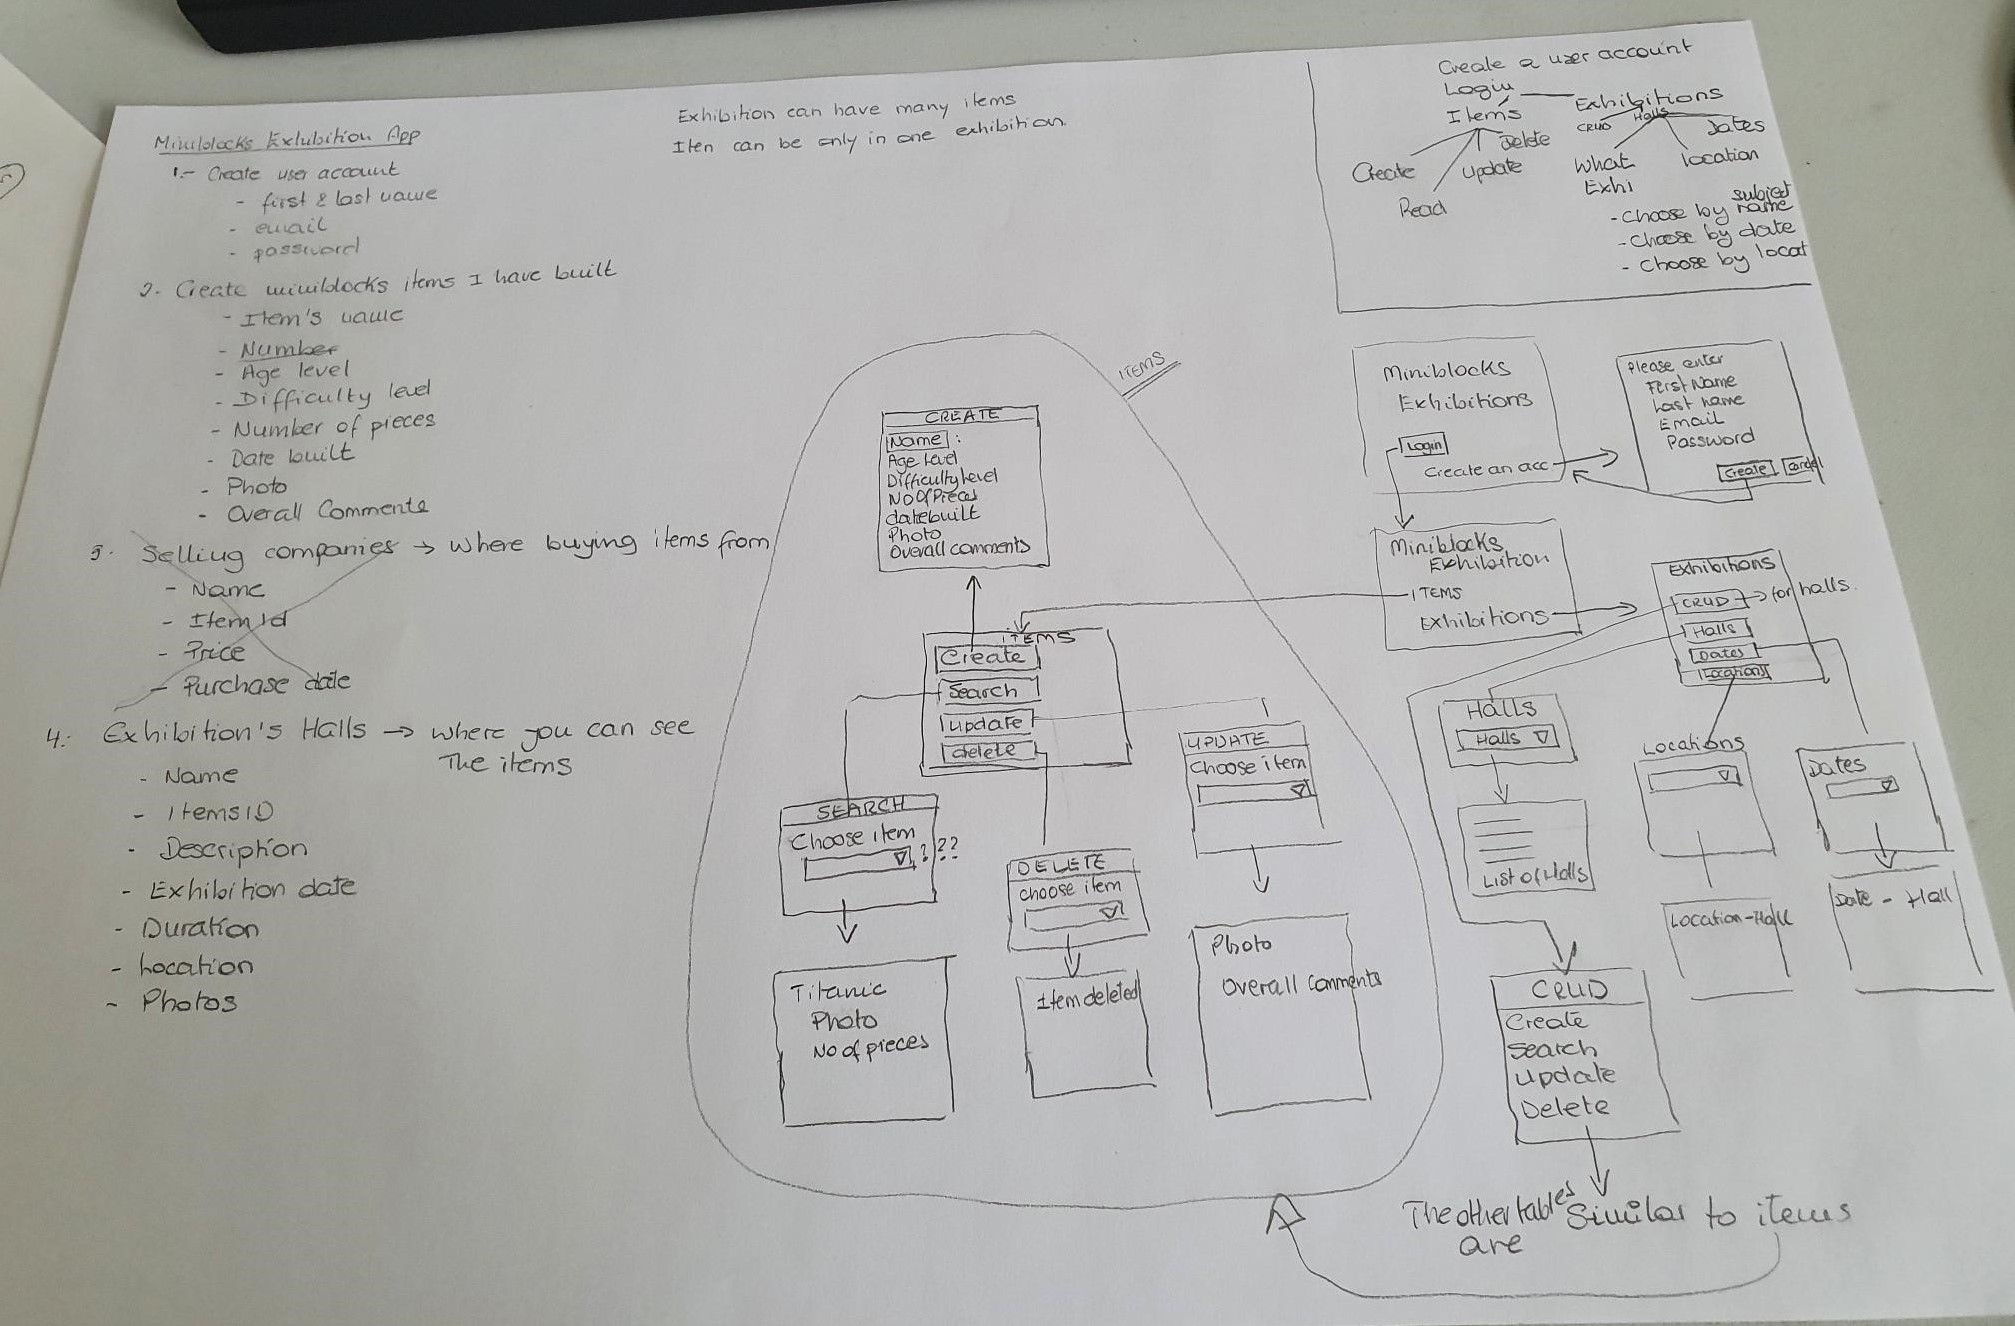 Miniblocks Exhibition App
1.- Create user account
- first & last name
- email
- password
2. Create miniblocks items I have built
- Item's name
- Number
- Age level
- Difficulty level
- Number of pieces
- Date built
- Photo
- Overall Comments
3. Selling companies → where buying items from
- Name
- Item Id
- Price
- Purchase date
4. Exhibition's Halls → where you can see
The items
- Name
- ItemsID
- Description
- Exhibition date
- Duration
- Location
- Photos
Exhibition can have many items
Iten can be only in one exhibition.
Create a user account
Login
Items
Create
Read
Update
Delete
Exhibitions
CRUD
Halls
Dates
What
Exhi
location
subject
- Choose by name
- Choose by date
- Choose by locat
ITEMS
CREATE
Name :
Age level
Difficulty level
No Of Pieces
datebuilt
Photo
Overall comments
ITEMS
Create
Search
update
delete
SEARCH
Choose item
???
Titanic
Photo
No of pieces
DELETE
choose item
Item deleted
UPDATE
Choose item
Photo
Overall comments
Miniblocks
Exhibitions
Login
Create an acc
Please enter
First Name
Last name
Email
Password
Create Cancel
Miniblocks
Exhibition
ITEMS
Exhibitions
Exhibitions
CRUD → for halls.
Halls
Dates
Locations
Halls
Halls
List of Halls
Locations
Location-Hall
Dates
Date - Hall
CRUD
Create
Search
Update
Delete
The other tables Similar to items
are